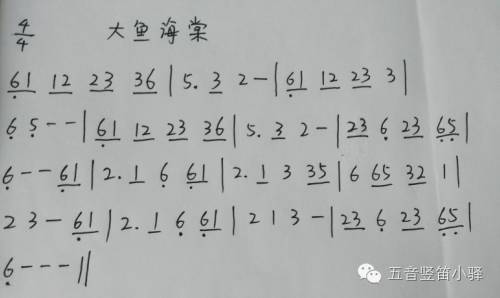 4/4 大鱼海棠
6̣1 12 23 36 | 5. 3 2 - | 6̣1 12 23 3 |
6̣ 5̣ - - | 6̣1 12 23 36 | 5. 3 2 - | 23 6̣ 23 6̣5̣ |
6̣ - - 6̣1 | 2. 1 6̣ 6̣1 | 2. 1 3 35 | 6 65 32 1 |
2 3 - 6̣1 | 2. 1 6̣ 6̣1 | 2 1 3 - | 23 6̣ 23 6̣5̣ |
6̣ - - - ||
五音竖笛小驿